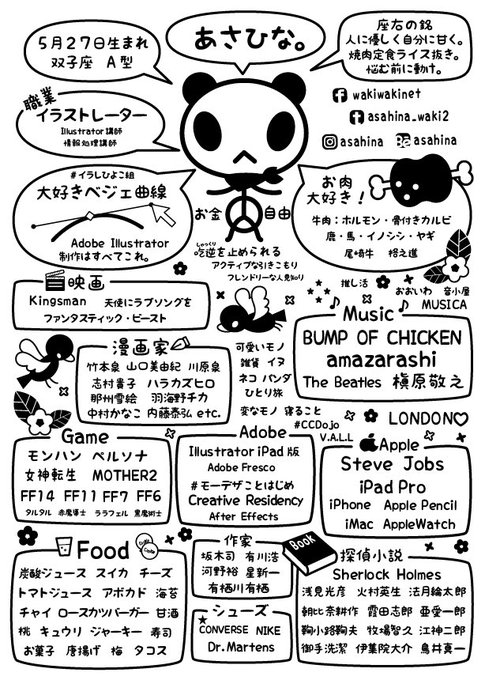 あさひな。
5月27日生まれ
双子座 A型
座右の銘
人に優しく自分に甘く。
焼肉定食ライス抜き。
悩む前に動け。
職業
イラストレーター
Illustrator講師
情報処理講師
wakiwakinet
asahina_waki2
asahina asahina
#イラしひよこ組
大好きベジェ曲線
Adobe Illustrator
制作はすべてこれ。
お金 自由
しゃっくり
吃逆を止められる
アクティブな引きこもり
フレンドリーな人見知り
お肉
大好き!
牛肉:ホルモン・骨付きカルビ
鹿・馬・イノシシ・ヤギ
尾崎牛 格之進
映画
Kingsman 天使にラブソングを
ファンタスティック・ビースト
推し活
おおいわ 音小屋
MUSICA
Music
BUMP OF CHICKEN
amazarashi
The Beatles 槇原敬之
漫画家
竹本泉 山口美由紀 川原泉
志村貴子 ハラカズヒロ
那州雪絵 羽海野チカ
中村かなこ 内藤泰弘 etc.
可愛いモノ
雑貨 イヌ
ネコ パンダ
ひとり旅
変なモノ 寝ること
#CCDojo
V.A.L.L
LONDON
Game
モンハン ペルソナ
女神転生 MOTHER2
FF14 FF11 FF7 FF6
タルタル 赤魔導士 ララフェル 黒魔術士
Adobe
Illustrator iPad版
Adobe Fresco
#モーデザことはじめ
Creative Residency
After Effects
Apple
Steve Jobs
iPad Pro
iPhone Apple Pencil
iMac AppleWatch
Food
炭酸ジュース スイカ チーズ
トマトジュース アボカド 海苔
チャイ ロースカツバーガー 甘酒
桃 キュウリ ジャーキー 寿司
お菓子 唐揚げ 梅 タコス
作家
坂木司 有川浩
河野裕 星新一
有栖川有栖
シューズ
CONVERSE NIKE
Dr.Martens
Book
探偵小説
Sherlock Holmes
浅見光彦 火村英生 法月綸太郎
朝比奈耕作 霞田志郎 亜愛一郎
鞠小路鞠夫 牧場智久 江神二郎
御手洗潔 伊集院大介 鳥井真一